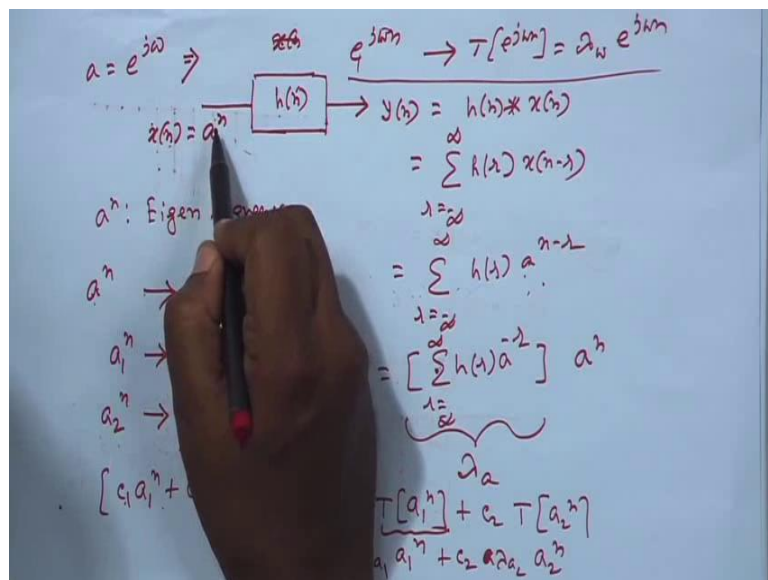 a = e^{jω} ⇒
e^{jωn} → T[e^{jωn}] = λ_ω e^{jωn}
h(n) → y(n) = h(n) * x(n)
x(n) = a^n
= ∑_{r=-∞}^{∞} h(r) x(n-r)
a^n : Eigen
= ∑_{r=-∞}^{∞} h(r) a^{n-r}
a^n →
a_1^n →
= [∑_{r=-∞}^{∞} h(r) a^{-r}] a^n
a_2^n →
λ_a
[c_1 a_1^n +
T[a_1^n] + c_2 T[a_2^n]
a_1^n + c_2 λ_{a_2} a_2^n